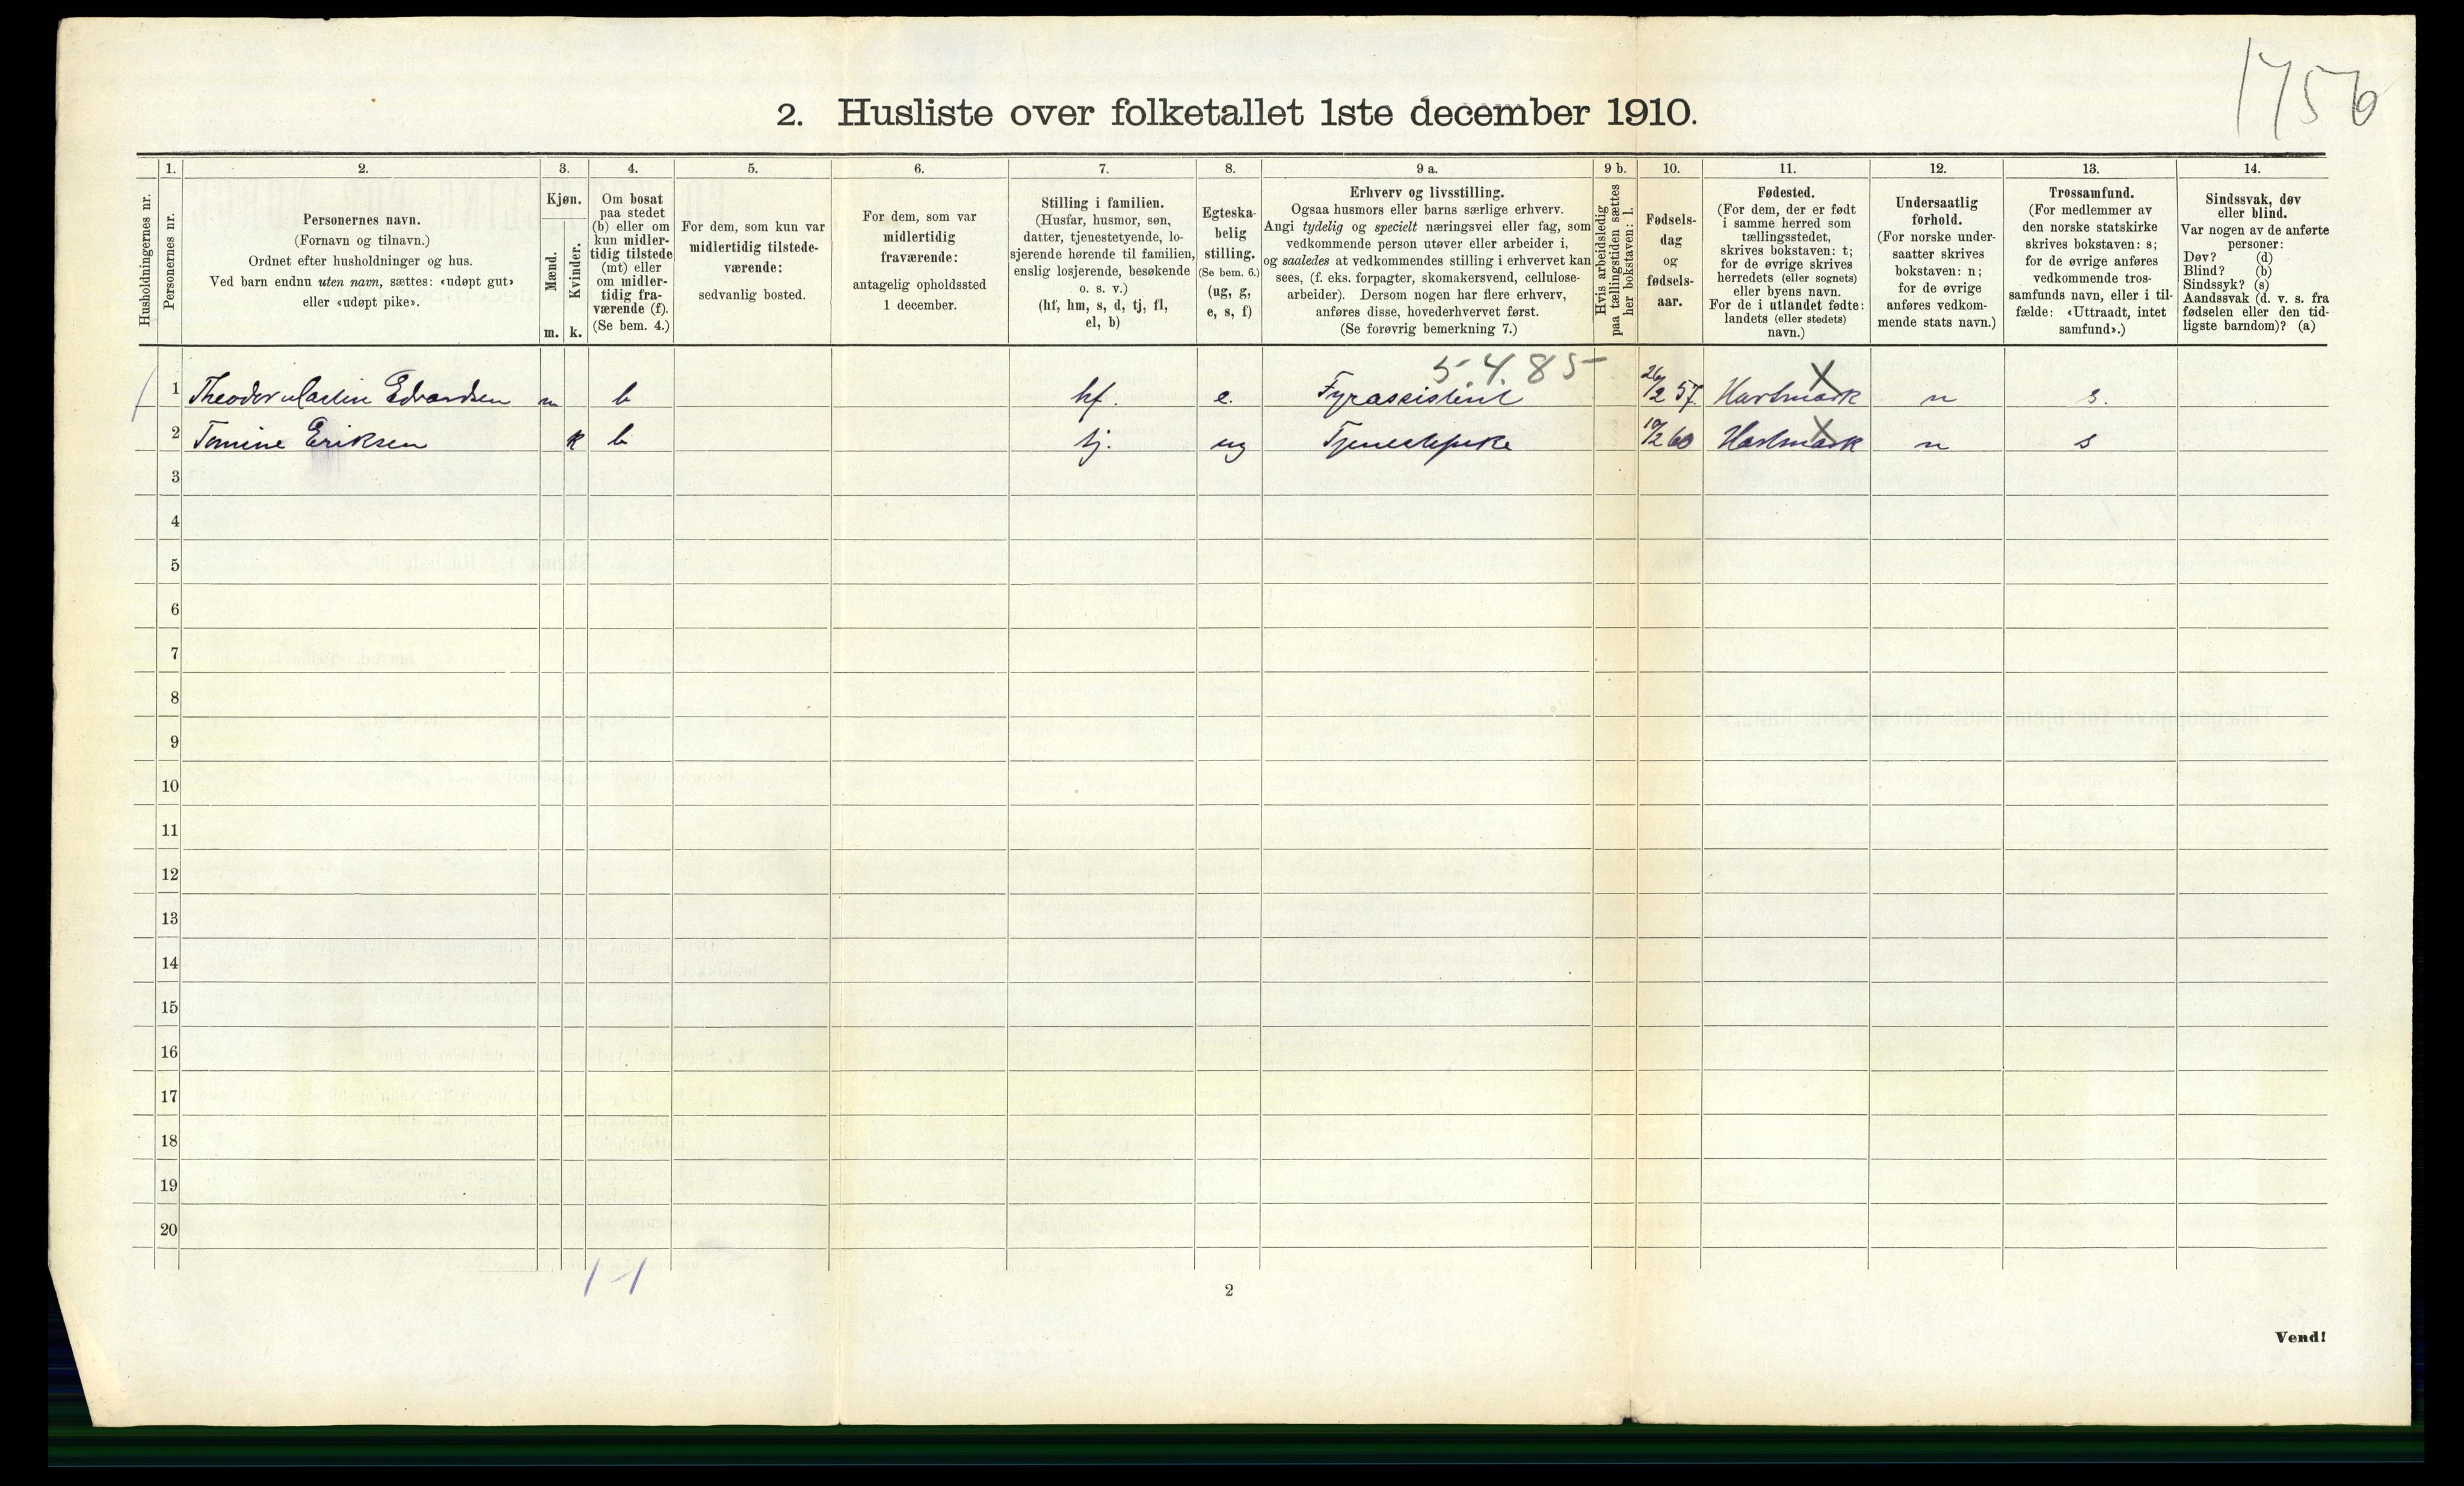 1756
2. Husliste over folketallet 1ste december 1910.
Husholdningernes nr.
1. Personernes nr.
2. Personernes navn.
(Fornavn og tilnavn.)
Ordnet efter husholdninger og hus.
Ved barn endnu uten navn, sættes: «udøpt gut»
eller «udøpt pike».
3. Kjøn.
Mænd. m.
Kvinder. k.
4. Om bosat
paa stedet
(b) eller om
kun midler-
tidig tilstede
(mt) eller
om midler-
tidig fra-
værende (f).
(Se bem. 4.)
5. For dem, som kun var
midlertidig tilstede-
værende:
sedvanlig bosted.
6. For dem, som var
midlertidig
fraværende:
antagelig opholdssted
1 december.
7. Stilling i familien.
(Husfar, husmor, søn,
datter, tjenestetyende, lo-
sjerende hørende til familien,
enslig losjerende, besøkende
o. s. v.)
(hf, hm, s, d, tj, fl,
el, b)
8. Egteska-
belig
stilling.
(Se bem. 6.)
(ug, g,
e, s, f)
9 a. Erhverv og livsstilling.
Ogsaa husmors eller barns særlige erhverv.
Angi tydelig og specielt næringsvei eller fag, som
vedkommende person utøver eller arbeider i,
og saaledes at vedkommendes stilling i erhvervet kan
sees, (f. eks. forpagter, skomakersvend, cellulose-
arbeider). Dersom nogen har flere erhverv,
anføres disse, hovederhvervet først.
(Se forøvrig bemerkning 7.)
9 b. Hvis arbeidsledig
paa tællingstiden sættes
her bokstaven: l.
10. Fødsels-
dag
og
fødsels-
aar.
11. Fødested.
(For dem, der er født
i samme herred som
tællingsstedet,
skrives bokstaven: t;
for de øvrige skrives
herredets (eller sognets)
eller byens navn.
For de i utlandet fødte:
landets (eller stedets)
navn.)
12. Undersaatlig
forhold.
(For norske under-
saatter skrives
bokstaven: n;
for de øvrige
anføres vedkom-
mende stats navn.)
13. Trossamfund.
(For medlemmer av
den norske statskirke
skrives bokstaven: s;
for de øvrige anføres
vedkommende tros-
samfunds navn, eller i til-
fælde: «Uttraadt, intet
samfund».)
14. Sindssvak, døv
eller blind.
Var nogen av de anførte
personer:
Døv? (d)
Blind? (b)
Sindssyk? (s)
Aandssvak (d. v. s. fra
fødselen eller den tid-
ligste barndom)? (a)
5.4.85
1 Theodor Martin Edvardsen m b hf. e. Fyrassistent 26/2 57. Hartmark n s.
2 Tomine Eriksen k b tj. ug Tjenestepike 10/2 60 Hartmark n s
3
4
5
6
7
8
9
10
11
12
13
14
15
16
17
18
19
20
1-1
2
Vend!